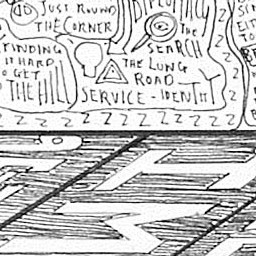 JUST ROUND
THE CORNER
FINDING
IT HARD
TO GET
THE HILL
DIPLOMACY
THE
SEARCH
THE LONG
ROAD
SERVICE - IDENTIT
Z Z Z Z Z Z Z Z Z Z Z